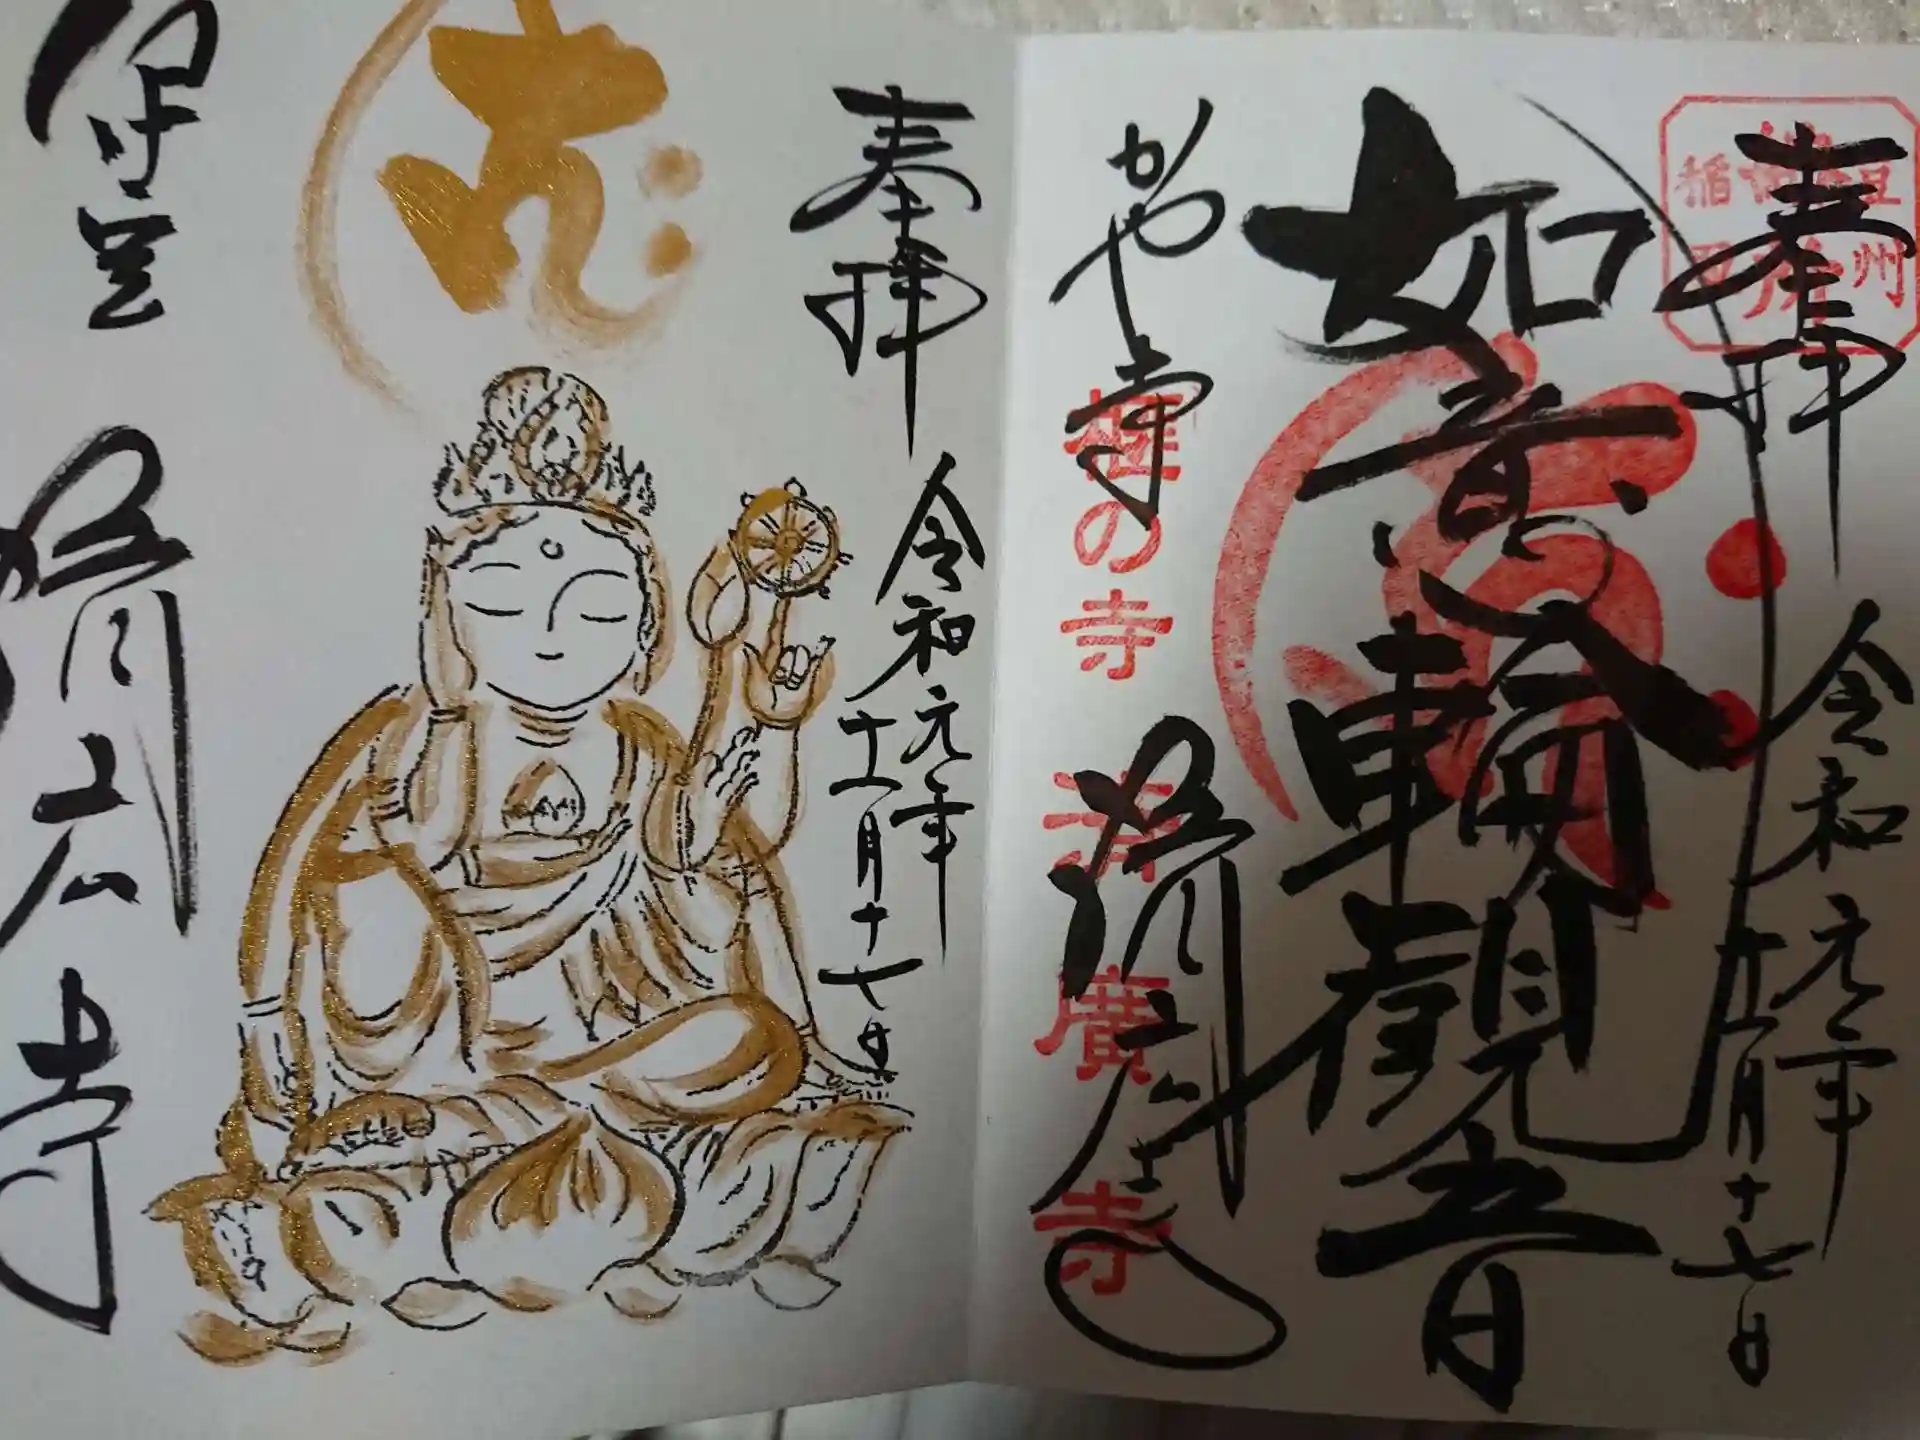 奉拝
令和元年
十一月十七日
如意輪観音
かやの寺
済広寺
豆州
稲取
榧の寺
済廣寺
奉拝
令和元年
十一月十七日
済広寺